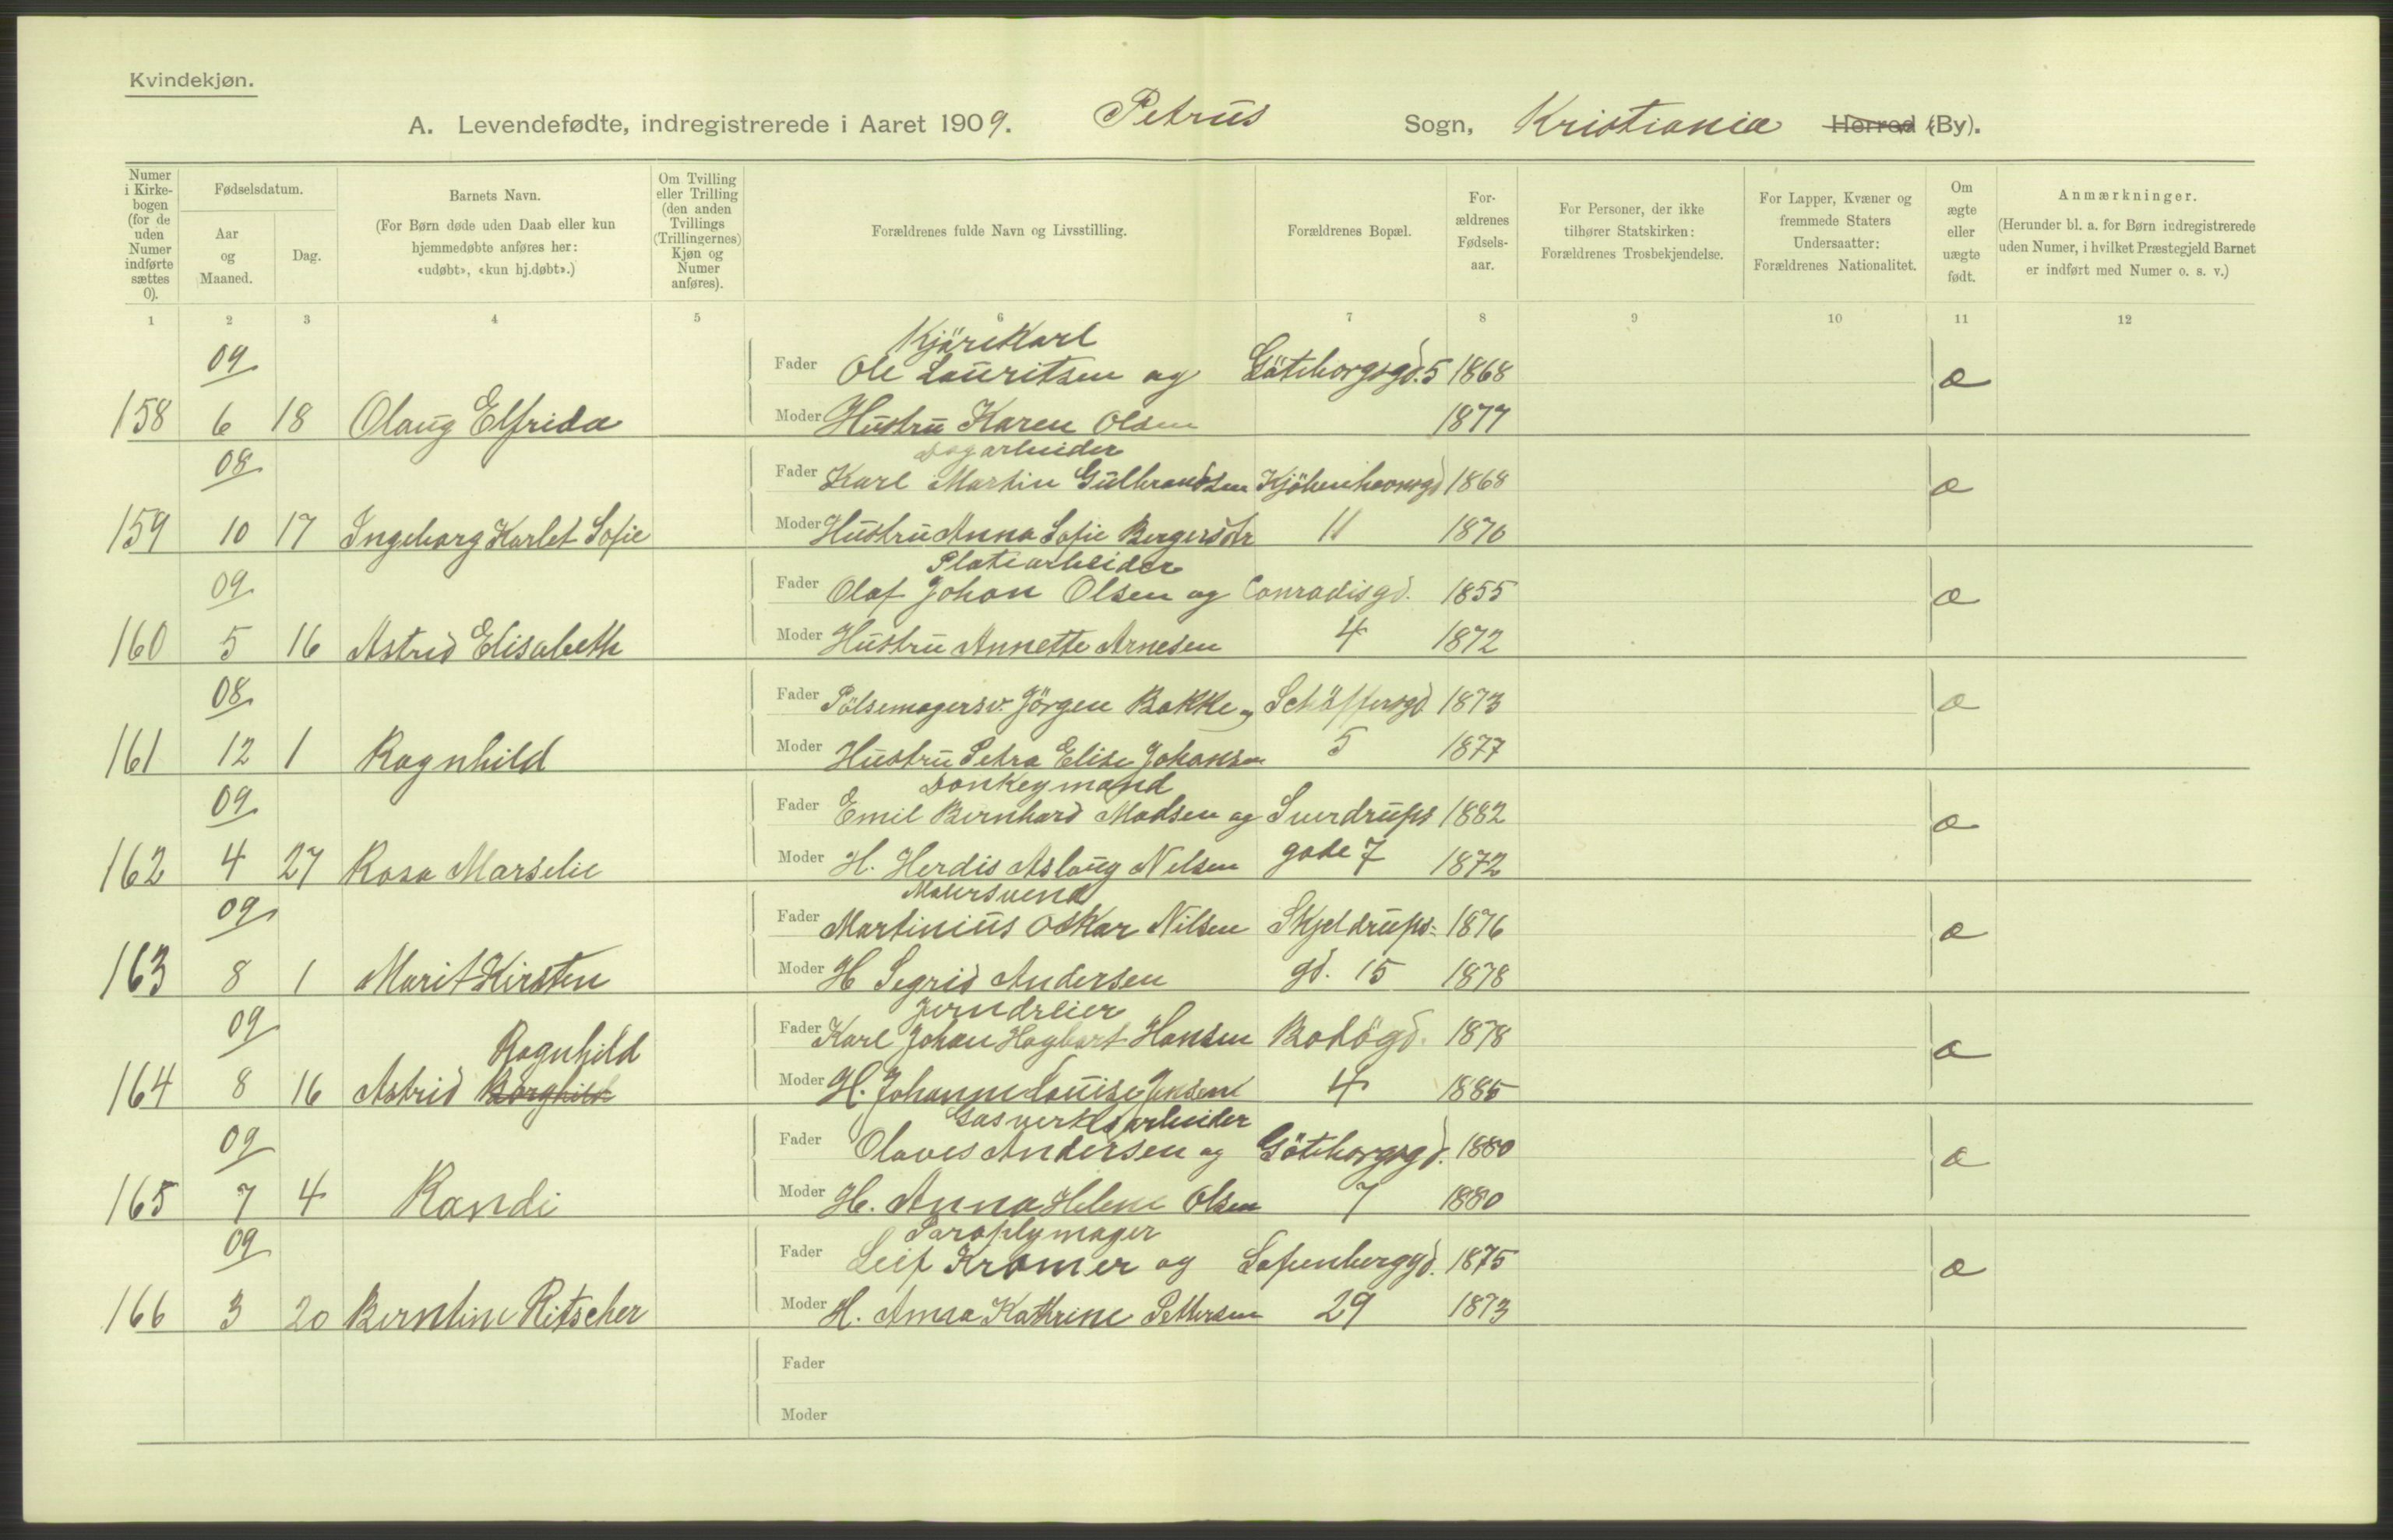 Kvindekjøn.
A. Levendefødte, indregistrerede i Aaret 1909. Petrus Sogn, Kristiania Herred (By).
Numer i Kirkebogen (for de uden Numer indførte sættes 0).
Fødselsdatum.
Aar og Maaned.
Dag.
Barnets Navn.
(For Børn døde uden Daab eller kun hjemmedøbte anføres her: «udøbt», «kun hj.døbt».)
Om Tvilling eller Trilling (den anden Tvillings (Trillingernes) Kjøn og Numer anføres).
Forældrenes fulde Navn og Livsstilling.
Forældrenes Bopæl.
Forældrenes Fødselsaar.
For Personer, der ikke tilhører Statskirken: Forældrenes Trosbekjendelse.
For Lapper, Kvæner og fremmede Staters Undersaatter: Forældrenes Nationalitet.
Om ægte eller uægte født.
Anmærkninger.
(Herunder bl. a. for Børn indregistrerede uden Numer, i hvilket Præstegjeld Barnet er indført med Numer o. s. v.)
1 2 3 4 5 6 7 8 9 10 11 12
Kjörekarl
09 Fader Ole Lauritsen og Göteborgsgd. 5 1868 æ
158 6 18 Olaug Elfrida Moder Hustru Karen Olsen 1877
Dagarbeider
08 Fader Karl Martin Gulbrandsen Kjöbenhavnsgd 1868 æ
159 10 17 Ingeborg Karlot Sofie Moder Hustru Anna Sofie Bergersdtr 11 1870
Pladsarbeider
09 Fader Olaf Johan Olsen og Conradisgd. 1855 æ
160 5 16 Astrid Elisabeth Moder Hustru Annette Arnesen 4 1872
08 Fader Pölsemagersv. Jörgen Bakke og Schäffersgd 1873 æ
161 12 1 Ragnhild Moder Hustru Petra Elise Johansen 5 1877
Donkeymand
09 Fader Emil Bernhard Madsen og Sverdrups 1882 æ
162 4 27 Rosa Marselie Moder H. Herdis Aslaug Nilsen gade 7 1872
Malersvend
09 Fader Martinius Oskar Nilsen Skjeldrups- 1876 æ
163 8 1 Marit Kirsten Moder H Segrid Andersen gd. 15 1878
Jerndreier
09 Ragnhild Fader Karl Johan Hagbart Hansen Bodögd. 1878 æ
164 8 16 Astrid Borghild Moder H. Johanne Louise Jensen 4 1885
Gasverksarbeider
09 Fader Olaves Andersen og Göteborgsgd. 1880 æ
165 7 4 Randi Moder H. Anna Helene Olsen 7 1880
Paraplymager
09 Fader Leif Kramer og Sofienberggd. 1875 æ
166 3 20 Berntine Ritscher Moder H. Anna Kathrine Pettersen 29 1873
Fader
Moder